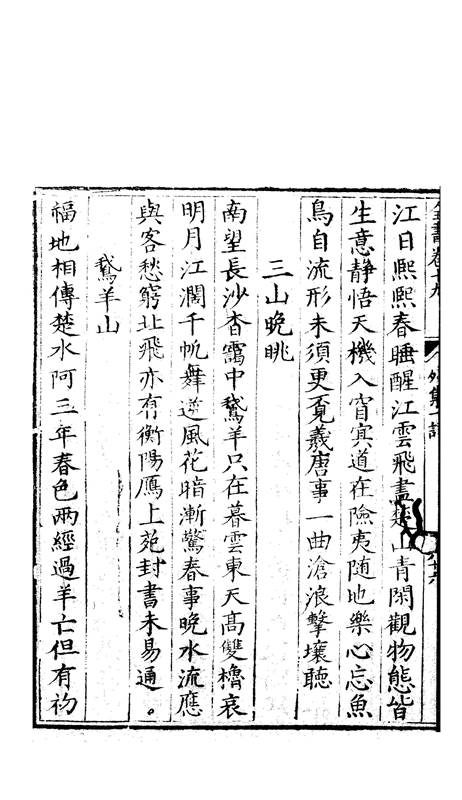 全書卷十九 外集一詩
江日熙熙春睡醒江雲飛盡楚山青閑觀物態皆
生意静悟天機入窅冥道在險夷随地樂心忘魚
鳥自流形未須更覓羲唐事一曲滄浪擊壤聽
三山晚眺
南望長沙杳靄中鵞羊只在暮雲東天高雙櫓哀
明月江濶千帆舞逆風花暗漸驚春事晚水流應
與客愁窮北飛亦有衡陽鴈上苑封書未易通。
鵞羊山
福地相傳楚水阿三年春色兩經過羊亡但有初